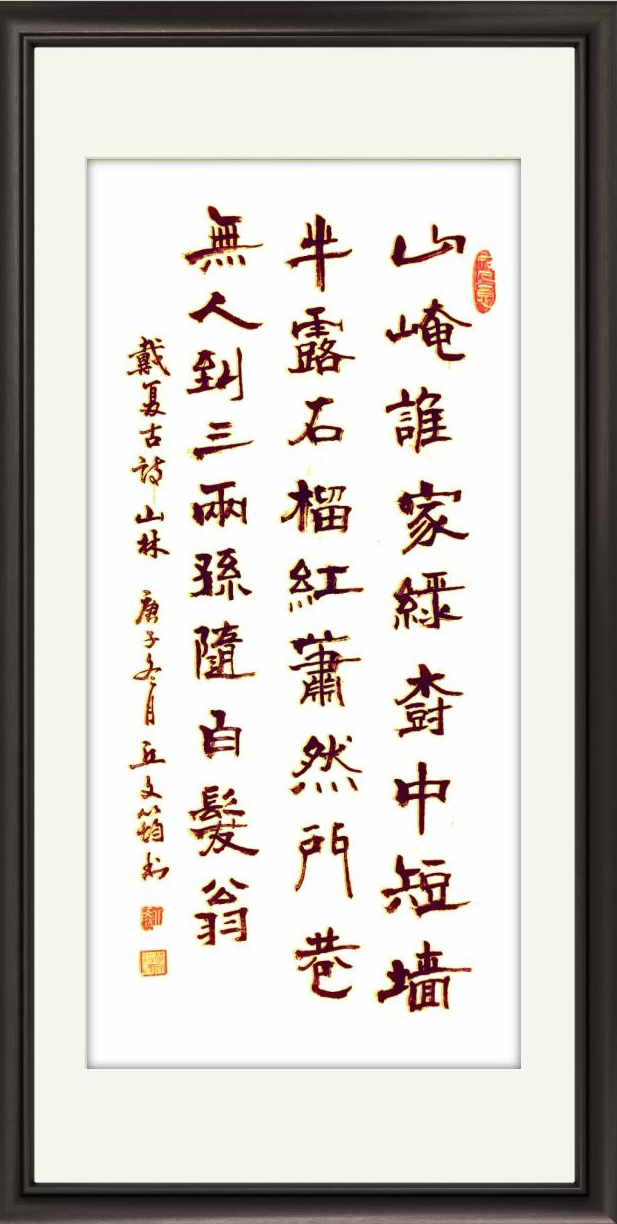 山崦誰家綠樹中短墙
半露石榴紅蕭然門巷
無人到三兩孫隨白髮翁
戴复古詩山林 庚子冬月 丘文筠书